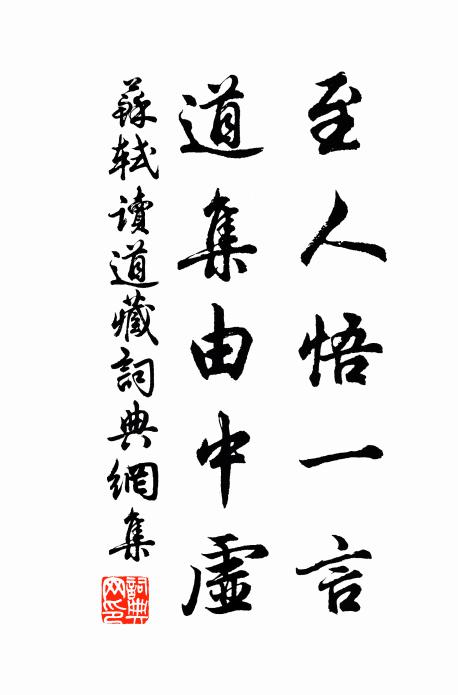 至人悟一言
道集由中虛
蘇軾讀道藏詞典網集
詞典网印